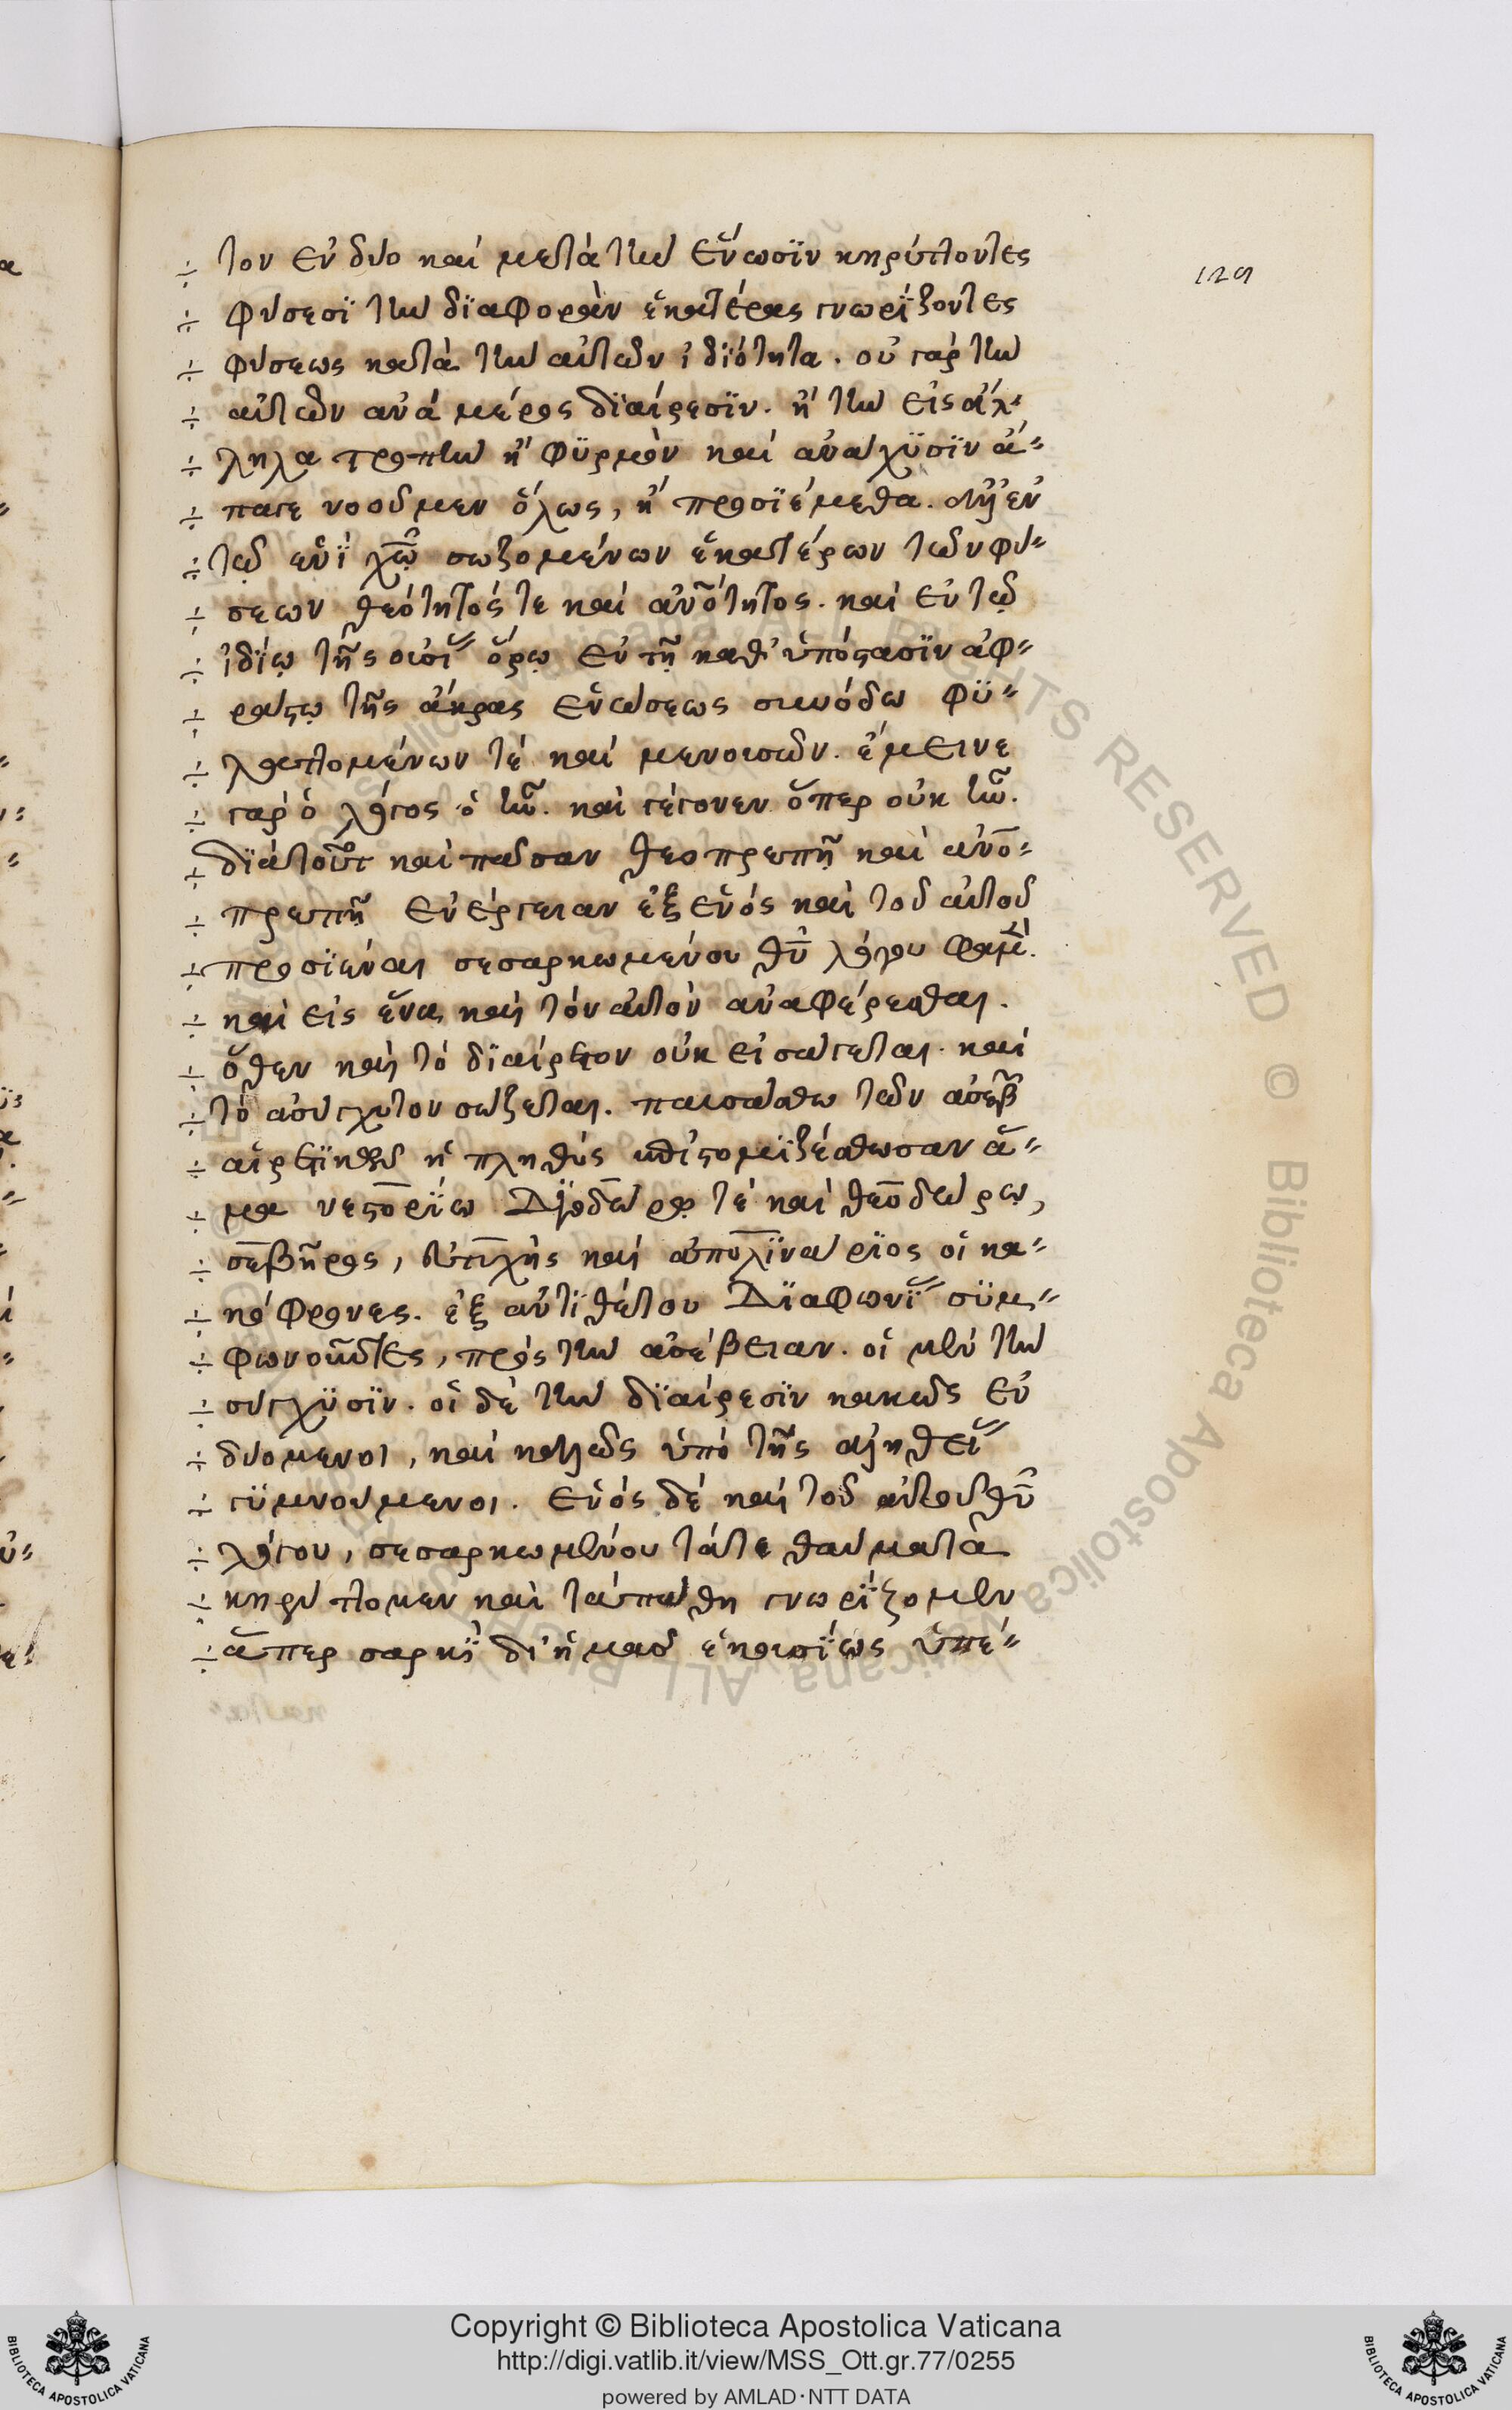 129
÷ τον ἐν δύο καὶ μετὰ τὴν ἕνωσϊν κηρύττοντες
÷ φύσεσϊ τὴν δϊαφορὰν ἑκατέρας γνωρΐζοντες
÷ φύσεως κατὰ τὴν αὐτῶν ἰδϊότητα. οὐ γὰρ τὴν
÷ αὐτῶν ἀνὰ μέρος δϊαίρεσϊν. ἢ τὴν εἰς ἄλ-
÷ ληλα τροπὴν ἢ φϋρμὸν καὶ ἀνάχϋσϊν ἅ-
÷ παγε νοοῦμεν ὅλως, ἢ προσϊέμεθα. ἀλλ' ἐν
÷ τῷ ἑνῒ χῶ σωζομένων ἑκατέρων τῶν φύ-
÷ σεων θεότητός τε καὶ ἀνότητος. καὶ ἐν τῷ
÷ ἰδίῳ τῆς οὐσΐ ὅρῳ ἐν τῇ καθ' ὑπόστασϊν ἀφ-
÷ ράστῳ τῆς ἄκρας ἑνώσεως συνόδω φϋ-
÷ λαττομένων τὲ καὶ μενουσῶν. ἔμεινε
÷ γὰρ ὁ λόγος ὁ ἦν. καὶ γέγονεν ὅπερ οὐκ ἦν.
÷ δϊὰ τοῦτ καὶ πᾶσαν θεοπρεπῆ καὶ ἀνο-
÷ πρεπῆ ἐνέργειαν ἐξ ἑνὸς καὶ τοῦ αὐτοῦ
÷ προσϊέναι σεσαρκωμένου θῦ λόγου φαμὲ.
÷ καὶ εἰς ἕνα καὶ τὸν αὐτὸν ἀναφέρεσθαι.
÷ ὅθεν καὶ τὸ δϊαίρετον οὐκ εἰσάγεται. καὶ
÷ τὸ ἀσύγχυτον σώζεται. παυσάσθω τῶν ἀσεβ
÷ αἱρετϊκῶν ἡ πληθύς κἀπιστομϊζέσθωσαν ἅ-
÷ μα νεστορΐω Δϊοδώρῳ τὲ καὶ θεοδώρω,
÷ σεβῆρος, εὐτυχὴς καὶ ἀπολϊνάρϊος οἱ κα-
÷ κόφρονες. ἐξ ἀντϊθέτου Δϊαφωνΐ σϋμ-
÷ φωνοῦντες, πρὸς τὴν ἀσέβειαν. οἱ μὲν τὴν
÷ σύγχϋσϊν. οἱ δὲ τὴν δϊαίρεσϊν κακῶς ἐν
÷ δυόμενοι, καὶ καλῶς ὑπὸ τῆς ἀληθεΐ
÷ γϋμνούμενοι. ἑνὸς δὲ καὶ τοῦ αὐτοῦ θῦ
÷ λόγου, σεσαρκωμένου τά τε θαύματα
÷ κηρύττομεν καὶ τὰ πάθη γνωρΐζομεν
÷ ἅπερ σαρκῒ δι' ἡμᾶς ἑκουσΐως ὑπέ-
Copyright © Biblioteca Apostolica Vaticana
http://digi.vatlib.it/view/MSS_Ott.gr.77/0255
powered by AMLAD·NTT DATA